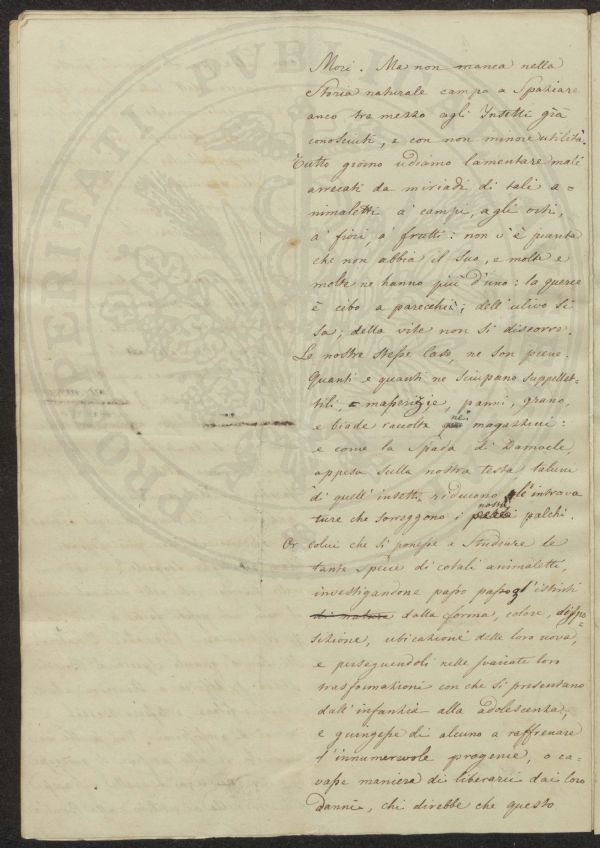 Mori. Ma non manca nella
Storia naturale campo a Spaziare
anco tra mezzo agli Insetti già
conosciuti, e con non minore utilità.
Tutto giorno udiamo lamentare mali
arrecati da miriadi di tali a=
nimaletti a' campi, agli orti,
a' fiori, a' frutti: non v'è pianta
che non abbia il suo, e molte e
molte ne hanno più d'uno: la querce
è cibo a parecchi; dell'ulivo si
sa; della vite non si discorre.
Le nostre stesse case, ne son piene.
Quanti e quanti ne sciupano suppellet=
tili, masserizie, panni, grano,
e biade raccolte nei magazzini:
e come la Spada di Damocle,
appesa sulla nostra testa taluni
di quell'insetti riducono l'intrava
ture che sorreggono i nostri palchi.
Or colui che si ponesse a Studiare le
tante specie di cotali animaletti,
investigandone passo passo gl'istinti
di natura dalla forma, colore, dispo=
sizione, ubicazione delle loro uova,
e perseguendoli nelle svariate loro
trasformazioni con che si presentano
dall'infanzia alla adolescenza,
e giungesse di alcuno a raffrenare
l'innumerevole progenie, o tro=
vasse maniera di liberarci dai loro
danni, chi direbbe che questo
PROSPERITATI PVBLI